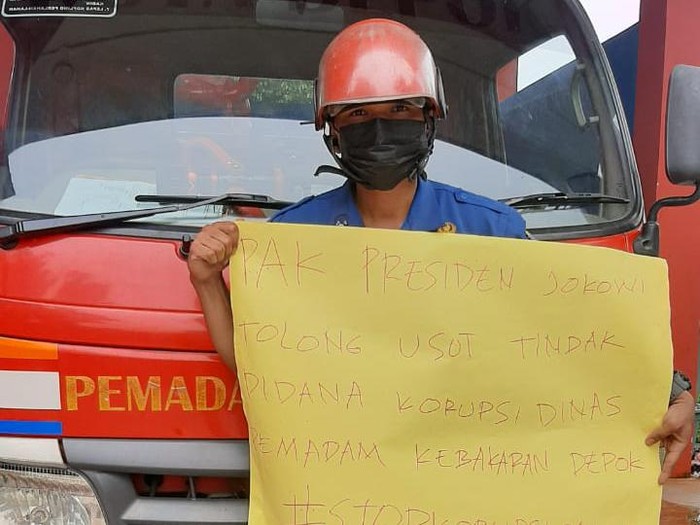 PAK PRESIDEN JOKOWI
TOLONG USUT TINDAK
PIDANA KORUPSI DINAS
PEMADAM KEBAKARAN DEPOK
PEMADA